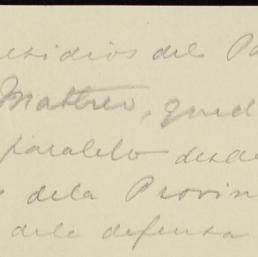 esidios del Pa
Mattreo, qued
paralelo desde
s dela Provin
dela defensa